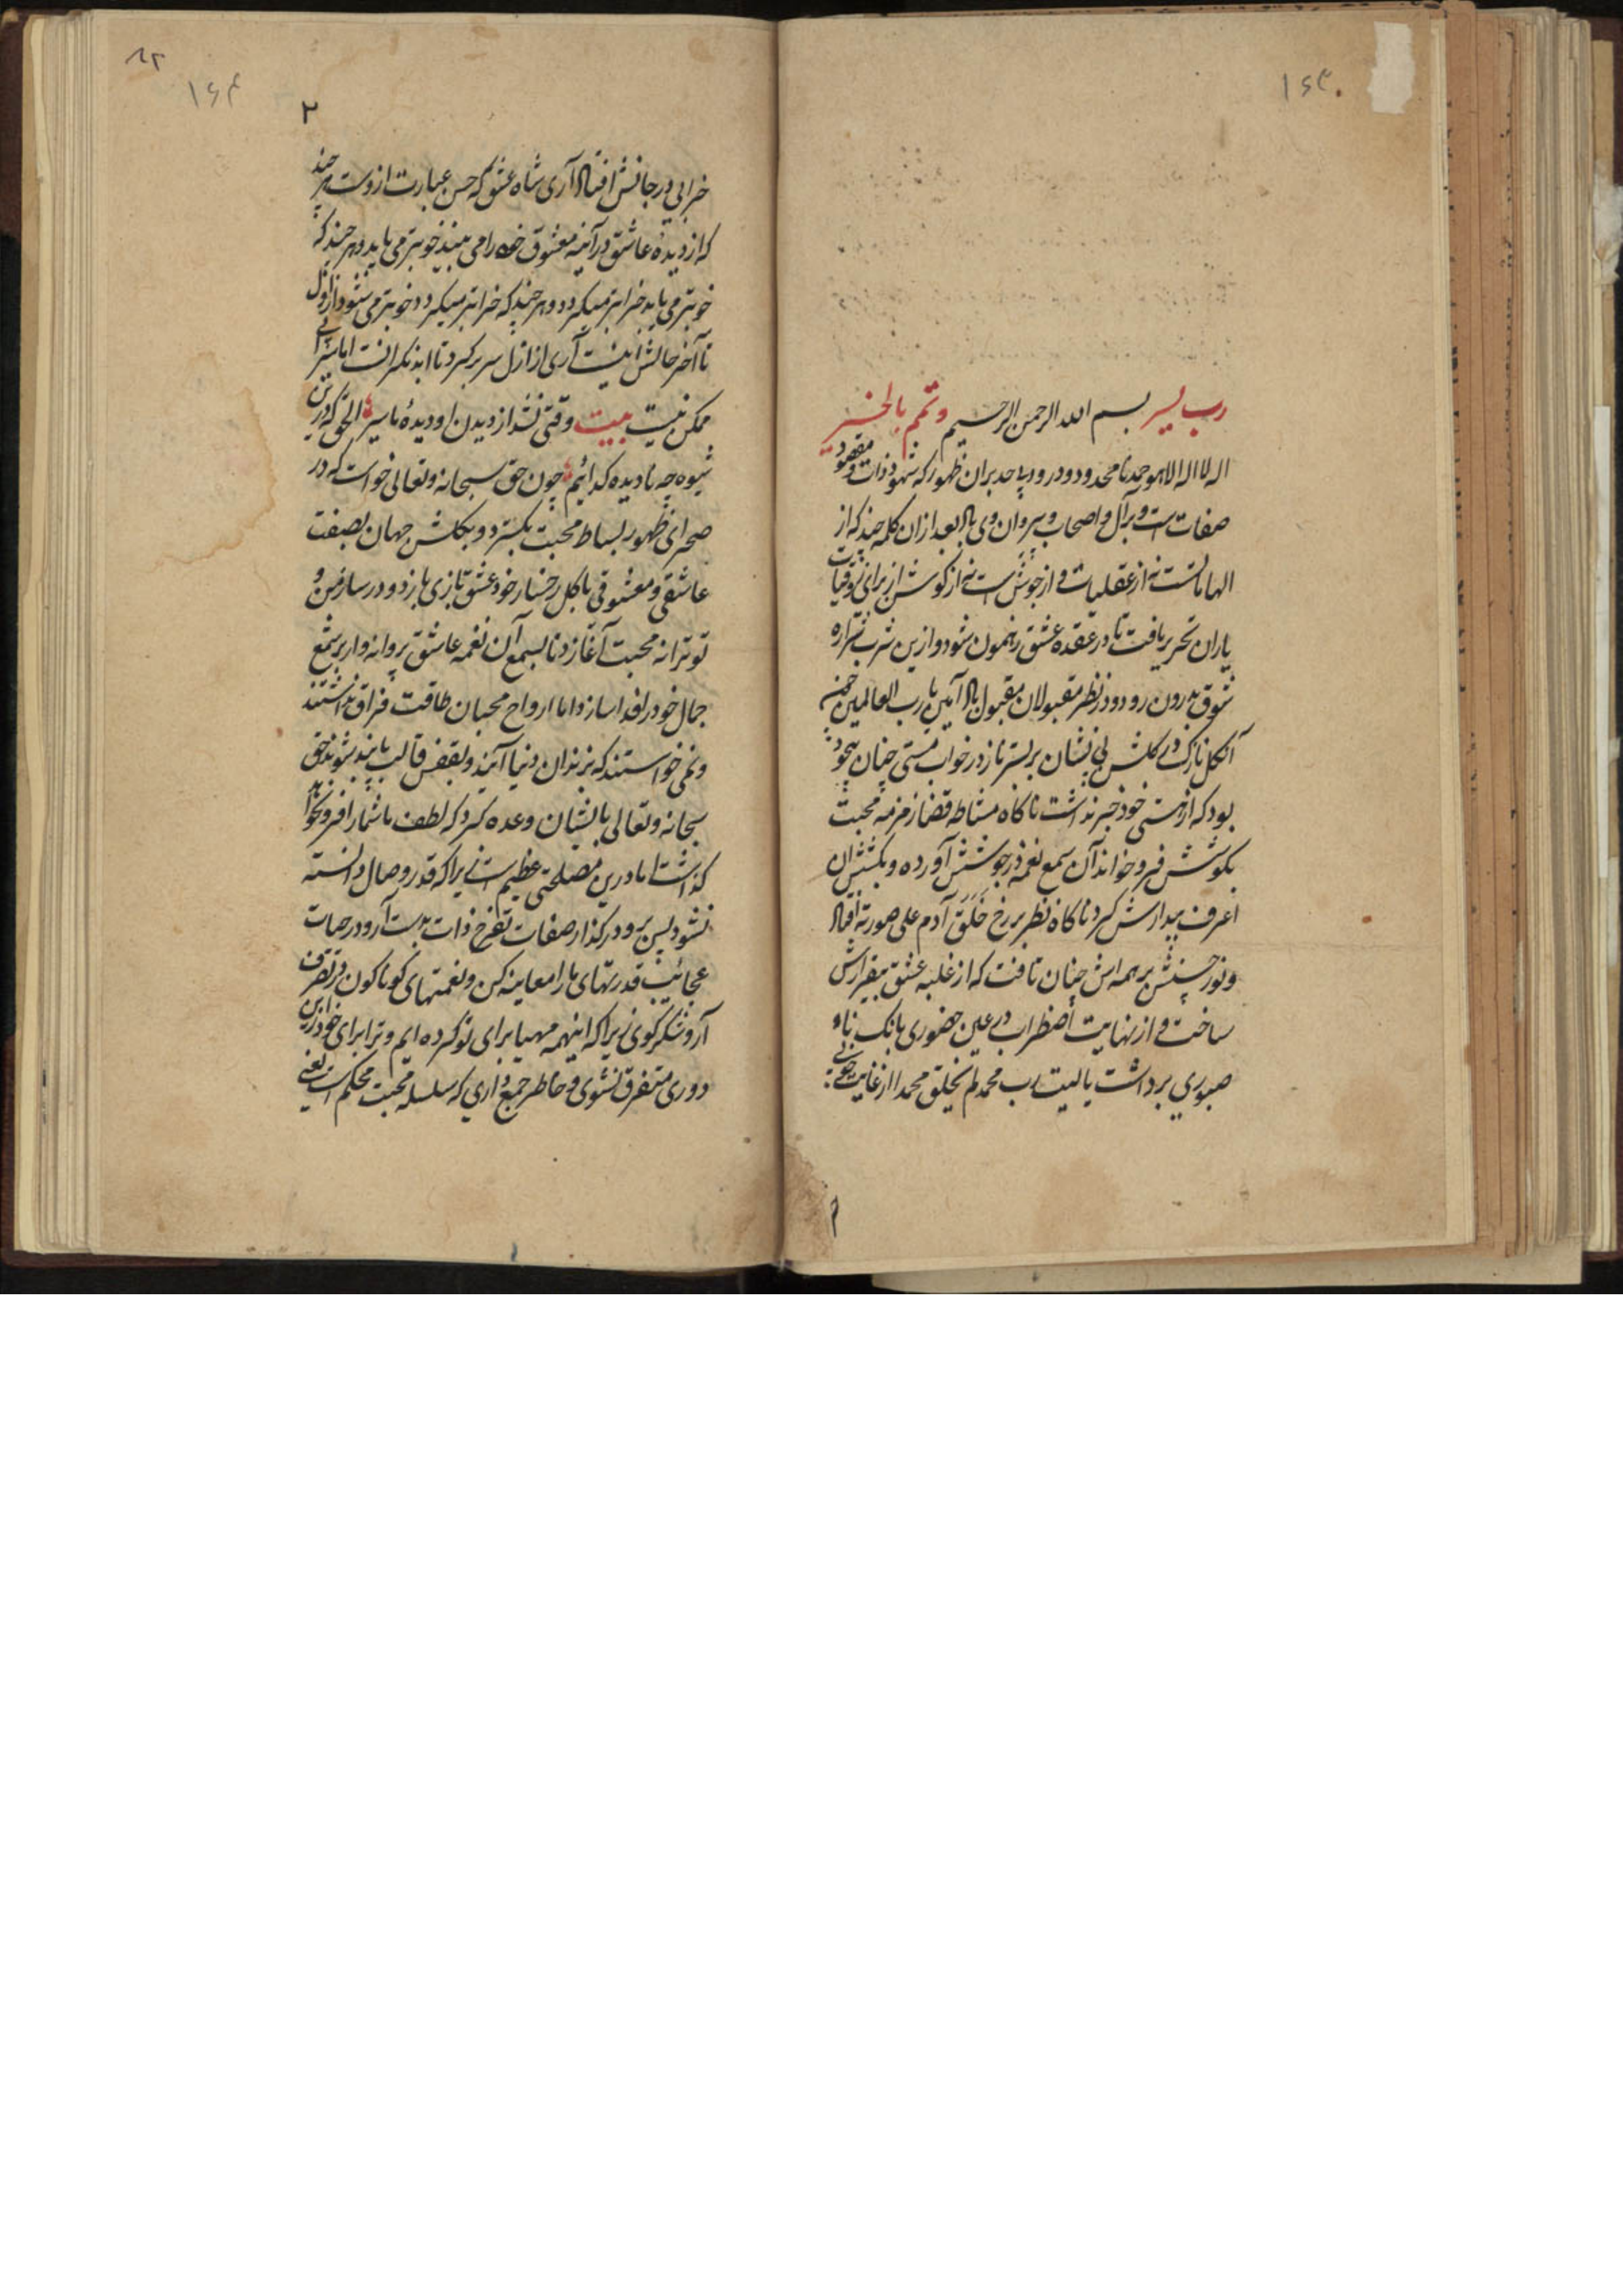 ۱۶۳
رب یسر بسم الله الرحمن الرحیم وتمم بالخیر
اله لا اله الا هو حمد نامحدود و درود بیحد بران ظهور که شهود ذات و مقصود
صفات است و بر آل و اصحاب و پیروان وی باد بعد ازان کلمه چند که از
الهاماتست نه از عقلیات و از جوش است نه از کوشش از برای
یاران تحریر یافت تا در عقده عشق رهنمون شود و ازین شرب شراره
شوق بدرون رود و در نظر مقبولان مقبول باد آمین یا رب العالمین
آن گل نازک در گلشن بی نشان بر بستر ناز در خواب مستی چنان بیخود
بود که از هستی خود خبر نداشت ناکاه مشاطه قضا زمزمه محبت
بکوشش فرو خواند آن سمع نغمه در جوشش آورده و بکشش ان
اعرف بیدارش کرد ناکاه نظر بر رخ خلق آدم علی صورته افتاد
و نور حسنش بر همه اش چنان تافت که از غلبه عشق بیقرارش
ساخت و از نهایت اضطراب در عین حضوری بانک بناء
صبوری برداشت یا لیت رب محمد لم یخلق محمدا از غایت
۲
۱۶۴
خرابی در جانش افتاد آری شاه عشق که حسن عبارت ازوست هر چند
که از دیده عاشق در آئینه معشوق خود را می بیند خوبتر می یابد و هر چند که
خوبتر می یابد خرابتر میکردد و هر چند که خرابتر میکردد خوبتر می شود از اول
تا آخر حالش اینست آری از ازل سر بر کرد تا ابد نکرانست اما سیرابی
ممکن نیست بیت وقتی نشد از دیدن او دیدۀ ما سیر الحق که درین
شیوه چه نادیده کدائیم چون حق سبحانه و تعالی خواست که در
صحرای ظهور بساط محبت بکسترد و بکلشن جهان بصفت
عاشقی و معشوقی با کل رخسار خود عشق بازی بازد و در ساز من و
تو ترانه محبت آغازد تا بسمع آن نغمه عاشق پروانه وار بر شمع
جمال خود را فدا سازد اما ارواح محبان طاقت فراق نداشتند
و نمی خواستند که بزندان دنیا آیند و بقفس قالب پابند شوند حق
سبحانه و تعالی بایشان وعده کرد که لطف ما شما را فرو نخواهد
کذاشت اما درین مصلحتی عظیم است زیرا که قدر وصال دانسته
نشود پس برو در کذار صفات تفرح ذات بدست آر و در حیات
عجائب قدرتهای ما را معاینه کن و نعمتهای کوناکون در تصرف
آر و شکر کوی زیرا که اینهمه مهیا برای تو کرده ایم و ترا برای خود ازین
دوری متفرق نشوی و خاطر جمع داری که سلسله محبت محکم است یعنی